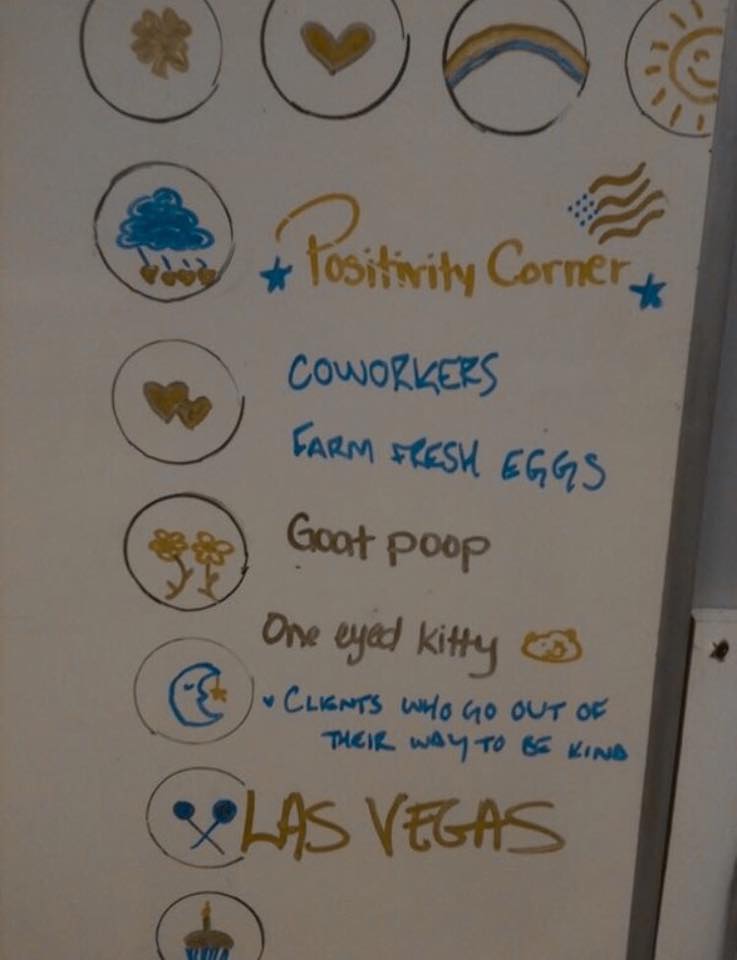 Positivity Corner
COWORKERS
FARM FRESH EGGS
Goat poop
One eyed kitty
CLIENTS WHO GO OUT OF
THEIR WAY TO BE KIND
LAS VEGAS